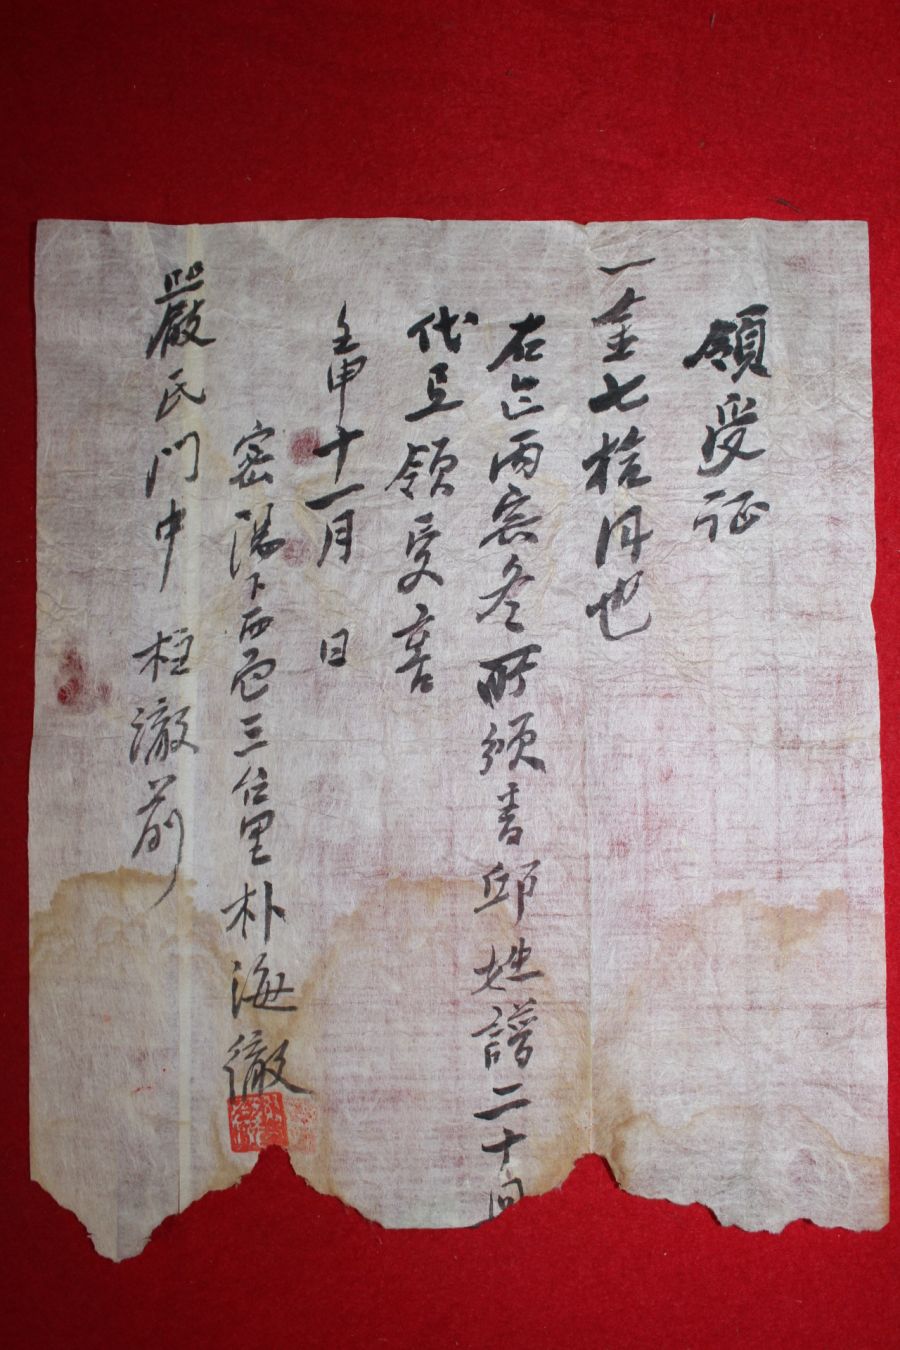 領受证
一金七拾円也
右亡丙寅冬所頒書邱姓譜二十
代互領受㐂
壬申十一月 日
密陽下西面三台里朴海徹
嚴氏門中 柱澈前